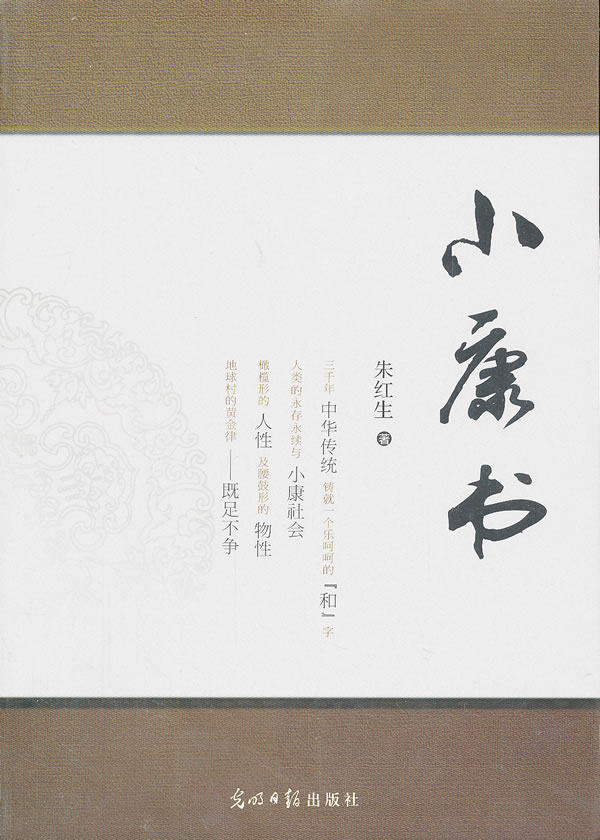 小康书
朱红生 著
三千年 中华传统 铸就一个乐呵呵的『和』字
人类的永存永续与 小康社会
橄榄形的 人性 及腰鼓形的 物性
地球村的黄金律——既足不争
光明日报出版社